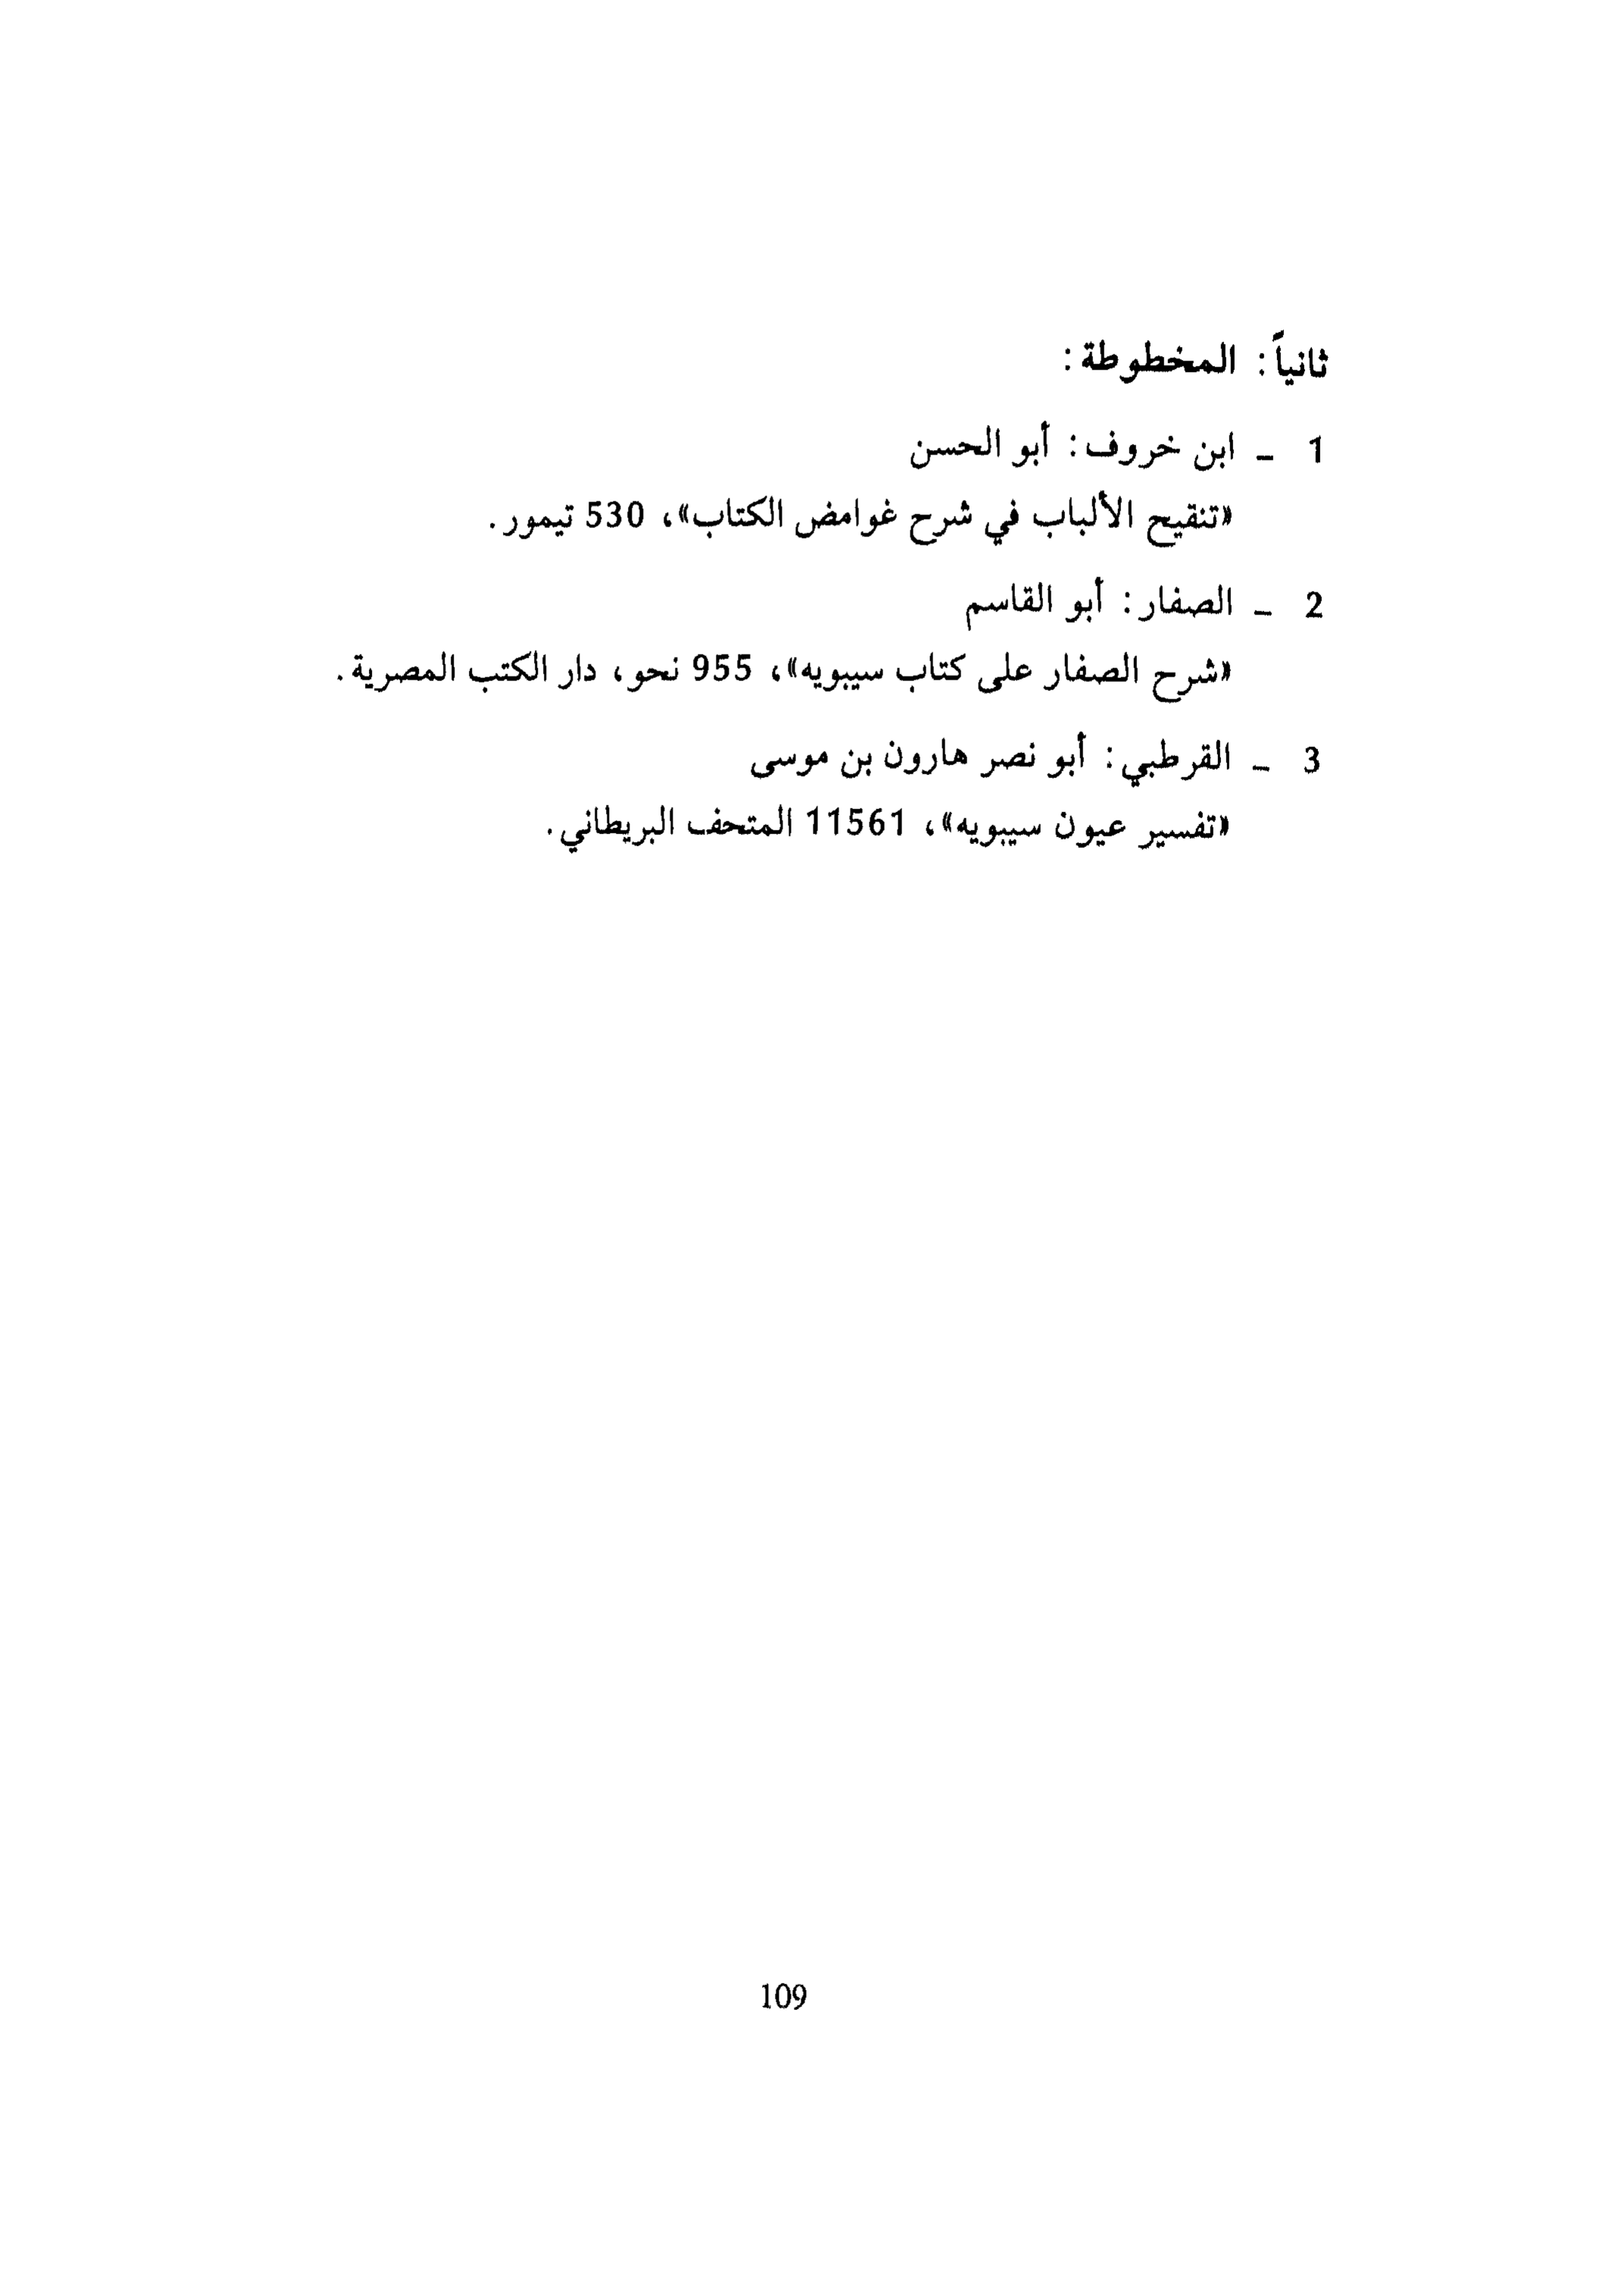 ثانياً: المخطوطة:
1 ـ ابن خروف: أبو الحسن
«تنقيح الألباب في شرح غوامض الكتاب»، 530 تيمور.
2 ـ الصفار: أبو القاسم
«شرح الصفار على كتاب سيبويه»، 955 نحو، دار الكتب المصرية.
3 ـ القرطبي: أبو نصر هارون بن موسى
«تفسير عيون سيبويه»، 11561 المتحف البريطاني.
109